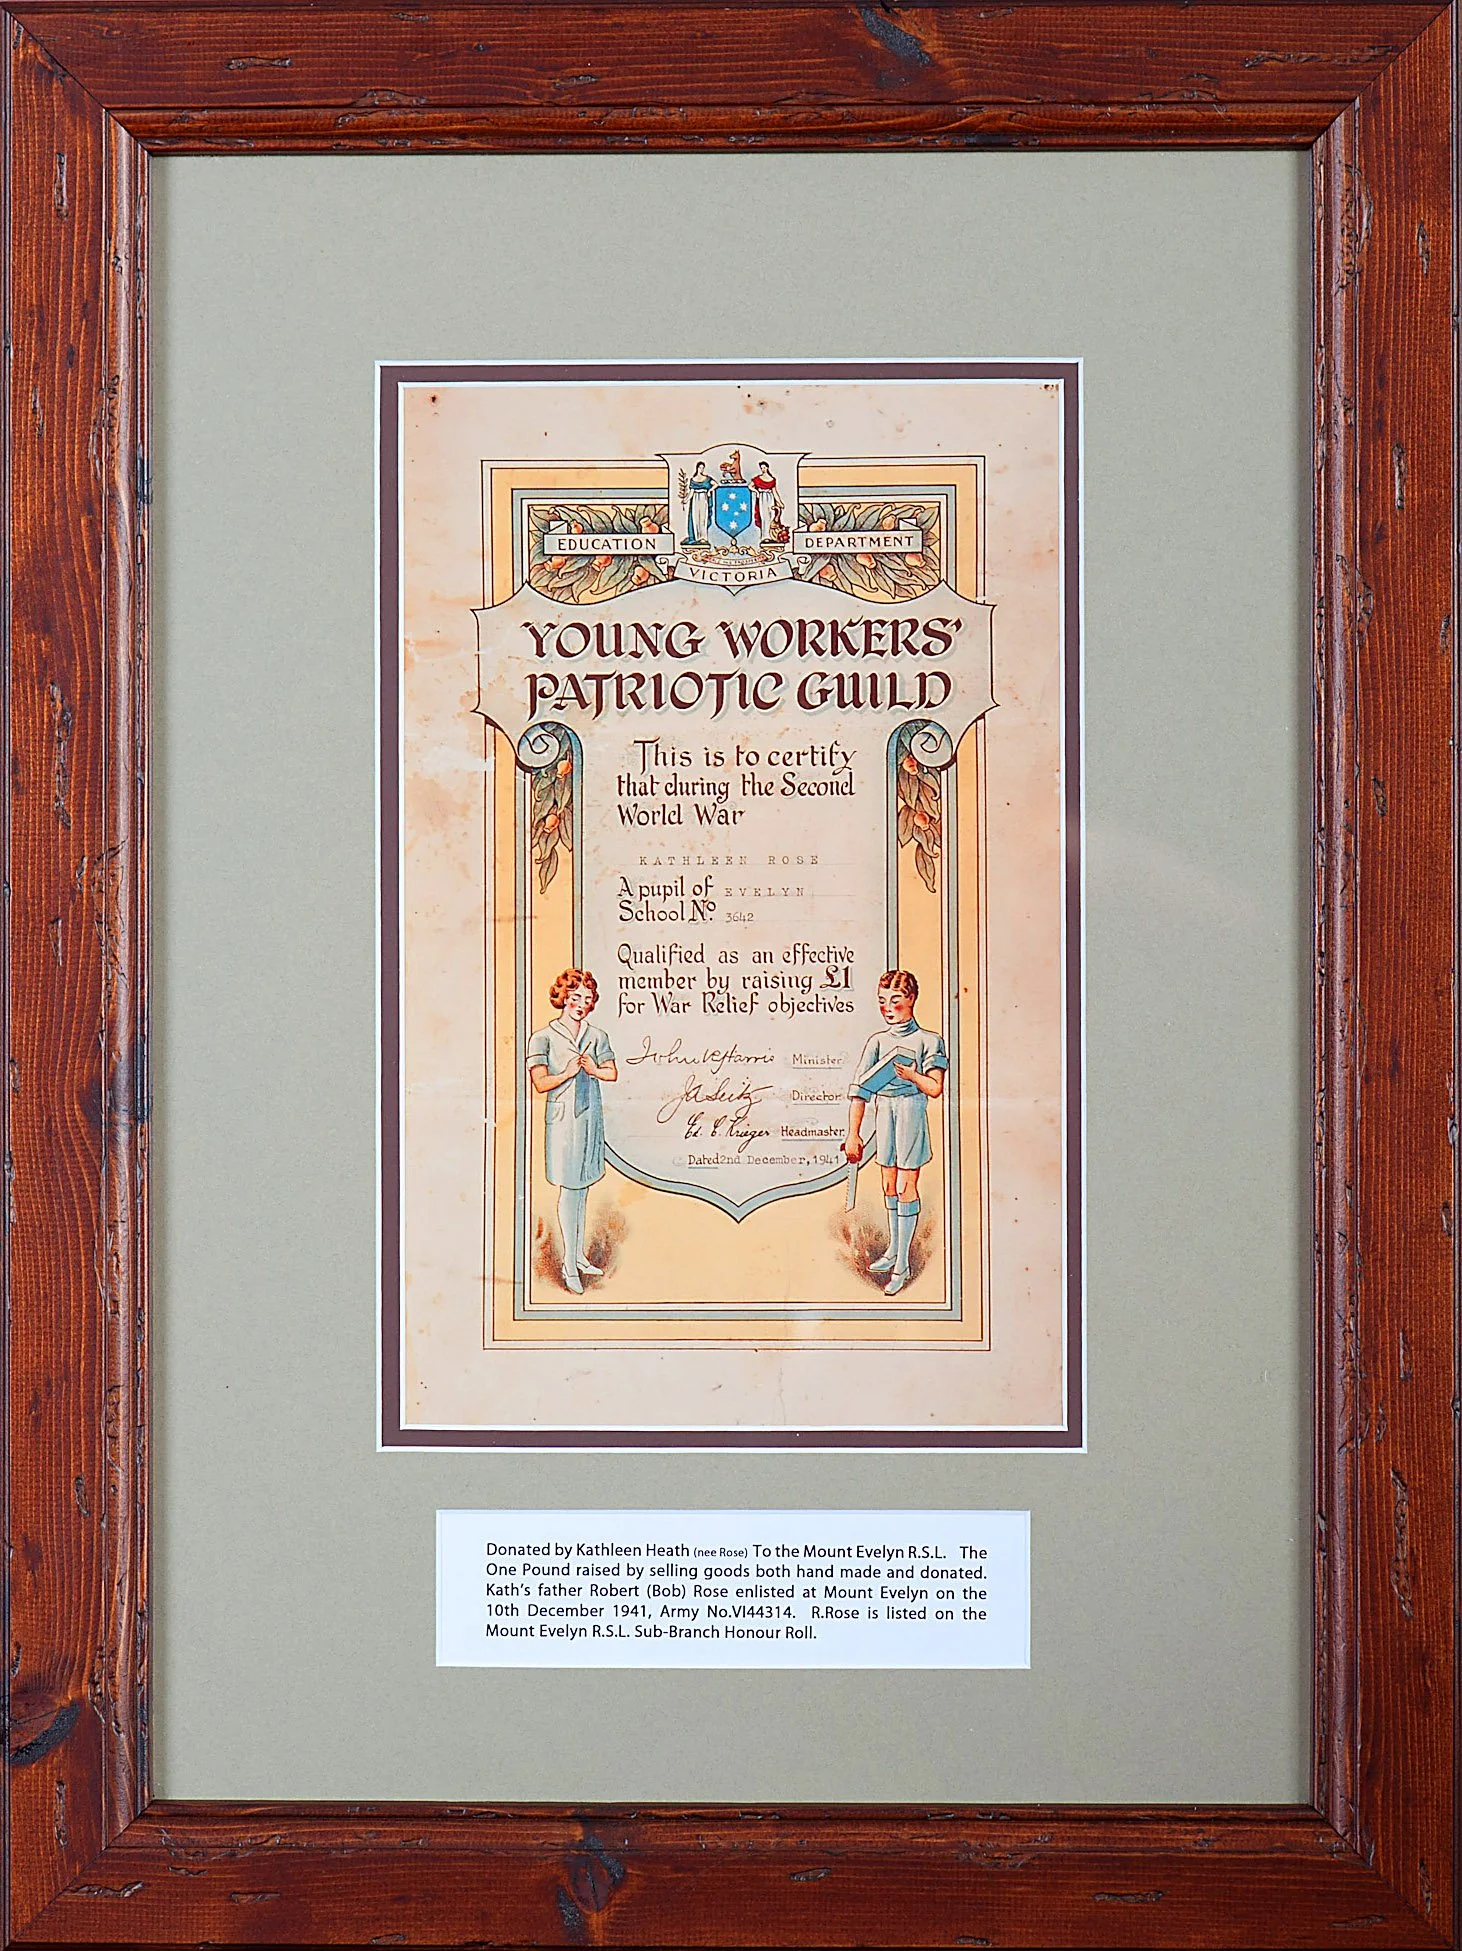 EDUCATION DEPARTMENT
VICTORIA
YOUNG WORKERS'
PATRIOTIC GUILD
This is to certify
that during the Second
World War
KATHLEEN ROSE
A pupil of EVELYN
School No. 3642
Qualified as an effective
member by raising £1
for War Relief objectives
John R Harris Minister
JA Seitz Director
Ed. C. Krieger Headmaster
Dated 2nd December, 1941
Donated by Kathleen Heath (nee Rose) To the Mount Evelyn R.S.L. The
One Pound raised by selling goods both hand made and donated.
Kath's father Robert (Bob) Rose enlisted at Mount Evelyn on the
10th December 1941, Army No.VI44314. R.Rose is listed on the
Mount Evelyn R.S.L. Sub-Branch Honour Roll.